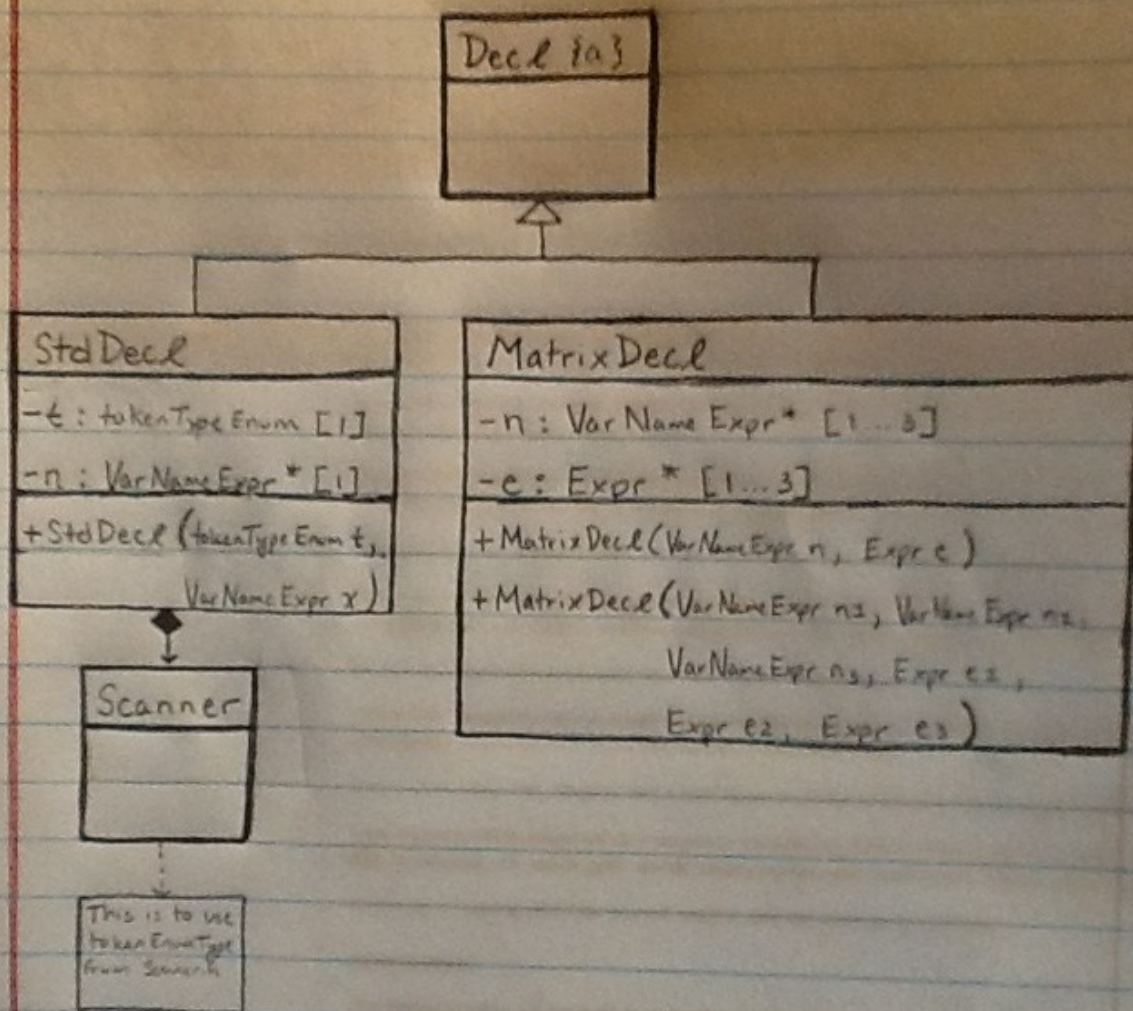 Decl {a}
StdDecl
-t : tokenTypeEnum [1]
-n : VarNameExpr * [1]
+StdDecl (tokenTypeEnum t,
VarNameExpr x)
MatrixDecl
-n : VarNameExpr* [1...3]
-e : Expr * [1...3]
+MatrixDecl(VarNameExpr n, Expr e)
+MatrixDecl(VarNameExpr n1, VarNameExpr n2,
VarNameExpr n3, Expr e1,
Expr e2, Expr e3)
Scanner
This is to use
tokenEnumType
from Scanner.h